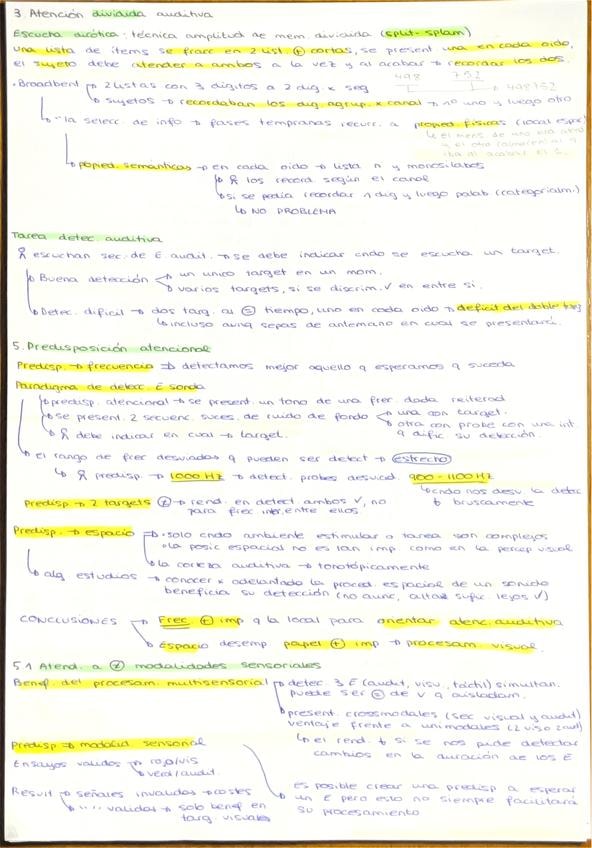 3. Atención dividida auditiva
Escucha dicótica: técnica amplitud de mem. dividida (split-splam)
una lista de ítems se fracc en 2 list + cortas, se present una en cada oído,
el sujeto debe atender a ambos a la vez y al acabar → recordar los dos.
498 752
→ 498752
• Broadbent → 2 listas con 3 dígitos a 2 dig. x seg
→ sujetos → recordaban los dig agrup. x canal → 1º uno y luego otro
→ "la selecc. de info → fases tempranas recurr. a propied. físicas (local espac)
→ el mens de una vía
y el otro
→ propied. semánticas → en cada oído → lista n y monosílabos
→ los record. según el canal
→ si se pedía recordar 1 dig y luego palab (categorialm.)
↳ NO PROBLEMA
Tarea detec. auditiva
escuchan sec. de E. audit. → se debe indicar cndo se escucha un target.
→ Buena detección → un unico target en un mom.
→ varios targets, si se discrim. ✓ en entre si.
→ Detec. dificil → dos targ. al = tiempo, uno en cada oído → deficit del doble targ
↳ incluso aunq sepas de antemano en cual se presentará.
5. Predisposición atencional
Predisp. → frecuencia ⇒ detectamos mejor aquello q esperamos q suceda
Paradigma de detecc. E sonda
→ predisp. atencional → se present. un tono de una frec. dada reiterad
→ se present. 2 secuenc. suces. de ruido de fondo → una con target.
→ otra con probe con una int.
q dific su detección.
→ debe indicar en cual → target.
→ el rango de frec desviadas q pueden ser detect → estrecho
↳ predisp. → 1000 Hz → detect. probes desviad. 900-1100 Hz
↳ cndo nos desv. la detec
↓ bruscamente
Predisp. → 2 targets → rend. en detect ambos ✓, no
para frec inter. entre ellos
Predisp. → espacio → • solo cndo ambiente estimular o tarea son complejos
• la posic espacial no es tan imp como en la percep visual
→ la corteza auditiva → tonotópicamente
→ alg estudios → conocer x adelantado la proced. espacial de un sonido
beneficia su detección (no aunc, altaz sufic lejos ✓)
CONCLUSIONES → Frec. + imp q la local para orientar atenc. auditiva
→ Espacio desemp. papel + imp → procesam visual.
5.1 Atend. a ≠ modalidades sensoriales
Benef. del procesam. multisensorial → detec. 3 E (audit, visu, táctil) simultan.
puede ser = de ✓ q aisladam.
→ present. crossmodales (sec visual y audit)
ventaje frente a unimodales (2 vis o 2 aud)
↳ el rend ↑ si se nos pide detectar
cambios en la duración de los E
Predisp ⇒ modalid. sensorial
Ensayos validos → rojo/vis
→ verd/audit.
Result → señales invalidas → costes
→ " " validas → solo benef en
targ. visuales
→ es posible crear una predisp a esperar
un E pero esto no siempre facilitará
su procesamiento